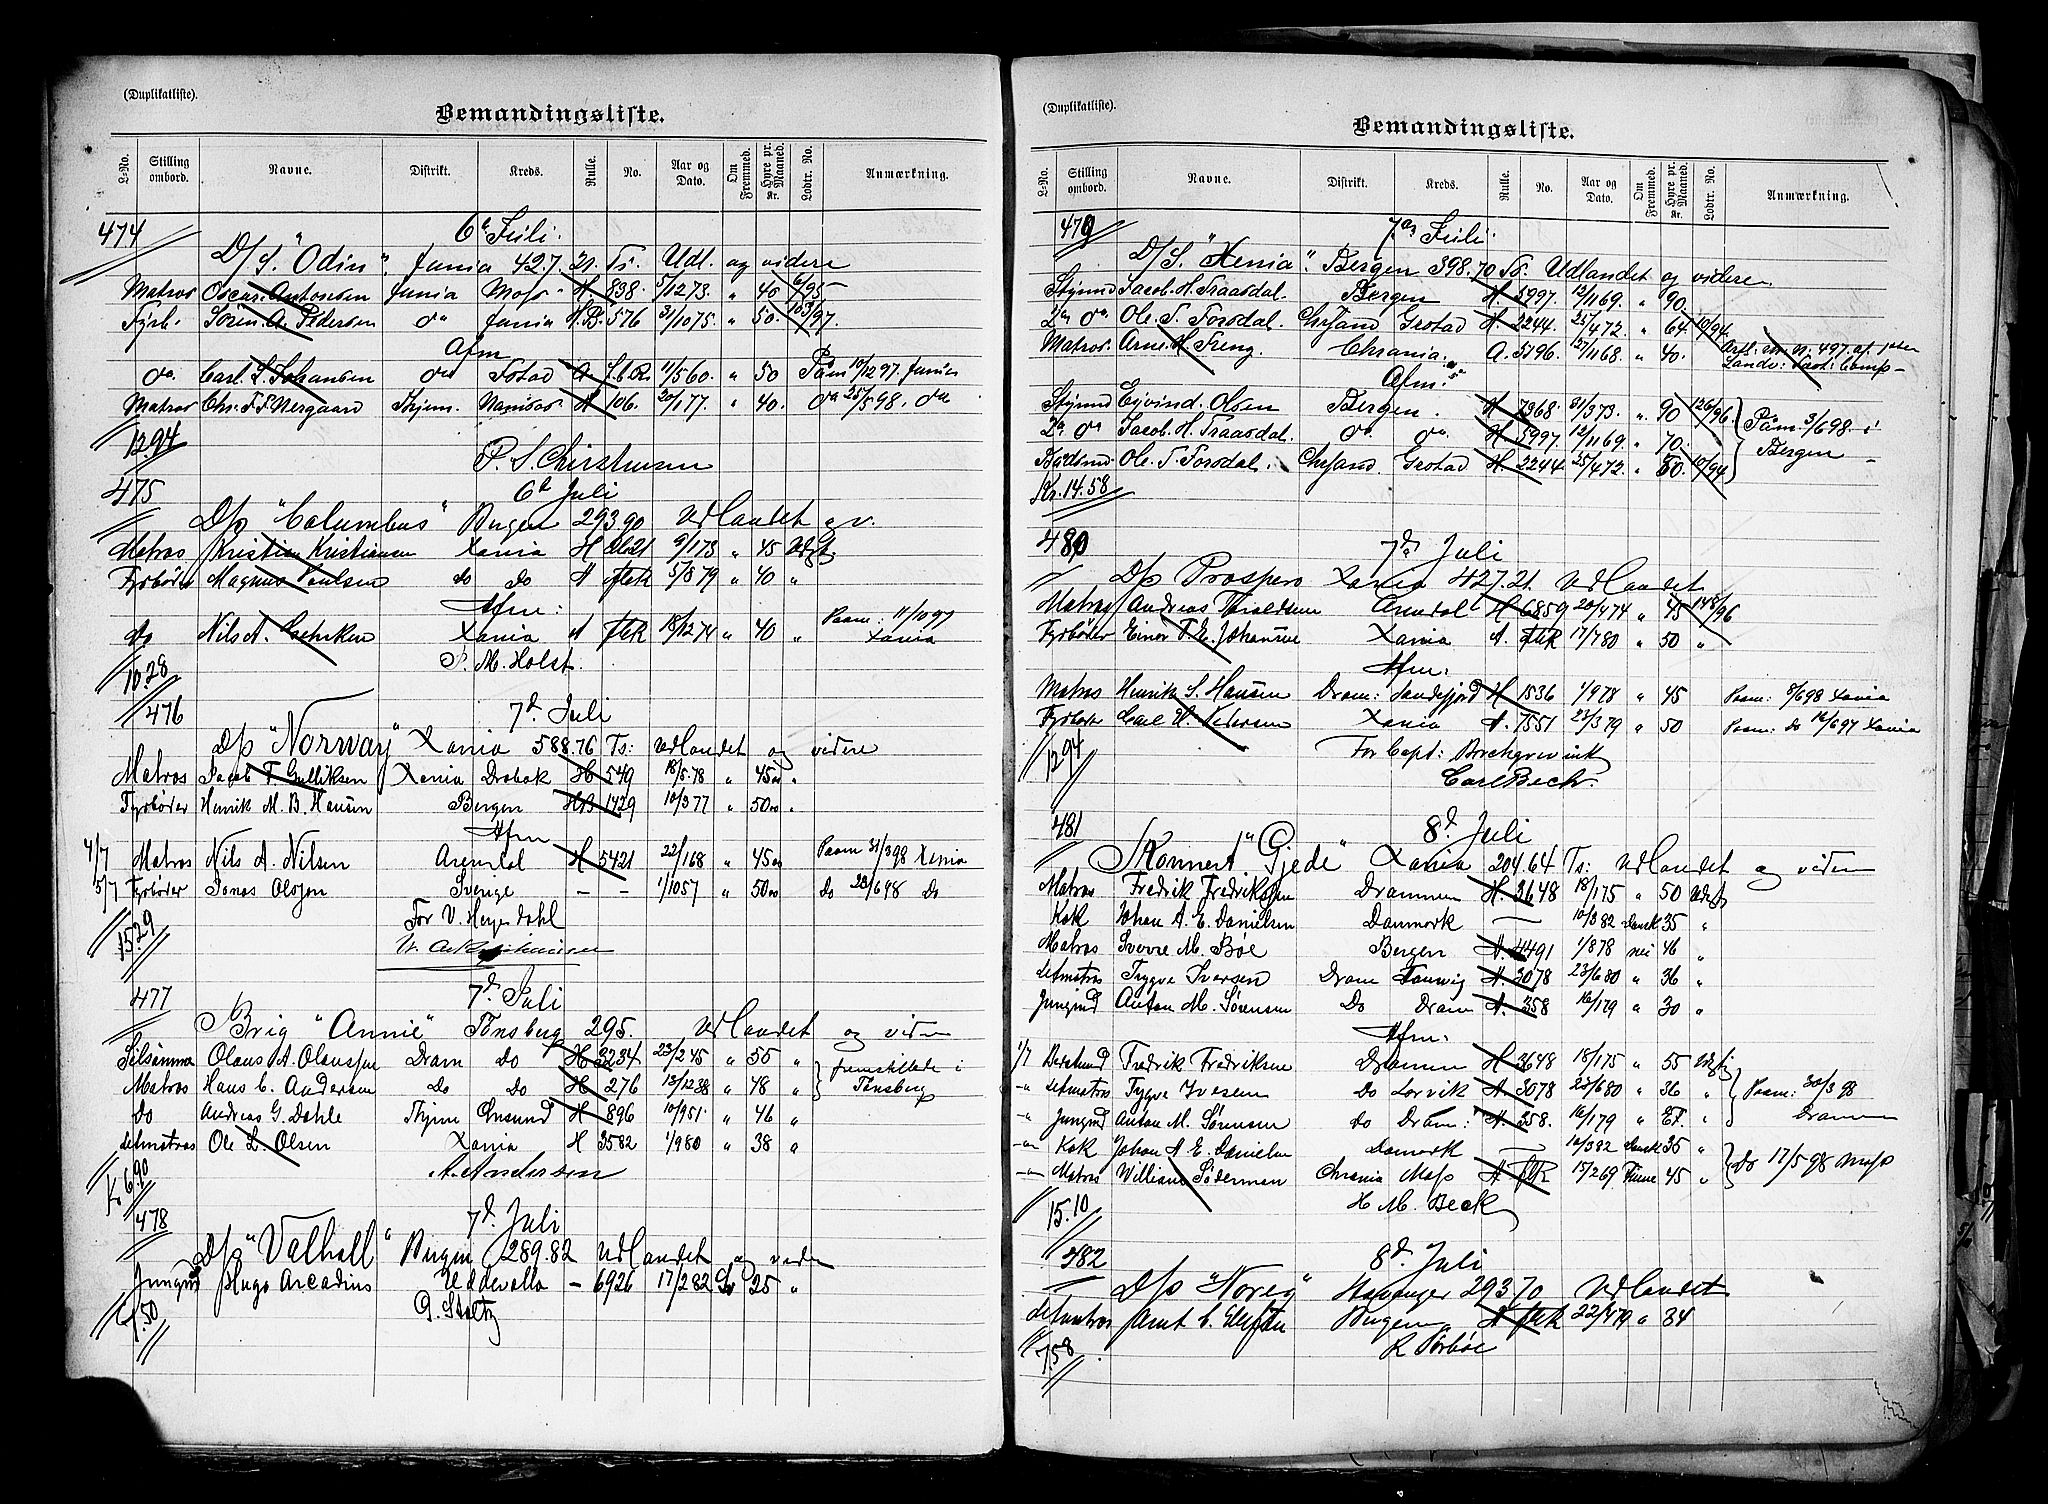 (Duplikatliste).
Bemandingsliste.
L-No. Stilling ombord. Navne. Distrikt. Kreds. Rulle. No. Aar og Dato. Om Fremmed. Hyre pr. Maaned. Kr. Lodtr. No. Anmærkning.
474 6te Juli.
D/S. "Odin". Xania 427.21 Ts. Udl. og videre
Matros Oscar Antonsen Xania Moss H. 838. 5/1273. " 40 6/95
Fyrb. Sören. A. Pedersen do Xania H.B. 576 31/1075. " 50. 103/97.
Afm
do. Carl. L. Johansen do A. 11/560. " 50 Paam 10/1297. Xania
Matros Chr. F. F. Nergaard Thjem. Namsos A 106. 20/177. " 40. do 25/598. do
12.94
P. S. Christensen
475 6d Juli
D/s "Columbus" Bergen 293.90 Udlandet o. v.
Matros Kristian Kristiansen Xania H 9/173 " 45 Udgt.
Fyrböder Magnus Poulsen do do A ftek 5/879 " 40 "
Afm:
do Nils A. Xania A ftek 18/1274 " 40 " Paam: 11/1097 Xania
10.28 P. M. Holst.
476 7d. Juli
D/s "Norway" Xania 588.76 Ts: Udlandet og videre
Matros Jacob F. Gulliksen Xania Drøbak H 549 18/5.78 " 45 00 "
Fyrböder Henrik M. B. Hansen Bergen HB 1429 10/377 " 50 00 "
Afm
4/7 Matros Nils A. Nilsen Arendal H 5421 22/168 " 45 00 Paam 31/398 Xania
5/7 Fyrböder Jonas Olsson Sverige - - 1/1057 " 50 00 Do 23/698 Do
15.29 For V. Heyerdahl
477 7d. Juli
Brig "Annie" Tönsberg 295. Udlandet og videre
Olaus A. Olaussen Dram Do H 3234 23/245 " 55 " } fremstillede i
Matros Hans C. Andersen Do Do H 276 13/1238 " 48 " } Tönsberg
Do Andreas G. Dahle Thjem H 896 10/951. " 46 "
Letmatros Ole L. Olsen Xania H 3582 1/980 " 38 "
Kr 6.90 A. Andersen
478 7d. Juli
D/s "Valhall" Bergen 289.82 Udlandet og videre
Jungmd Hugo Arcadius Uddevalla - 6926 17/282 Sv 25 "
7.50 G. Stoltz
(Duplikatliste).
Bemandingsliste.
L-No. Stilling ombord. Navne. Distrikt. Kreds. Rulle. No. Aar og Dato. Om Fremmed. Hyre pr. Maaned. Kr. Lodtr. No. Anmærkning.
479 7de Juli.
D/S. "Xenia". Bergen 398.70 Ts. Udlandet og videre
Styrmd Jacob. H. Traasdal. Bergen H. 5997. 12/1169. " 90.
2den do. Ole. T. Forsdal. Chrsand Grostad H. 2244. 25/472. " 64. 10/94
Matros. Arne. H Freng. Chrania. A. 5196. 27/1168. " 40.
Afm:
Styrmd Ejvind. Olsen Bergen. H 7368. 31/373. " 90 126/96 } Paam. 3/698. i
2de do Jacob. H. Traasdal. do. do. H. 5997. 12/1169. " 70. Bergen
Baadsmd. Ole. T. Forsdal. Chrsand Grostad H. 2244 25/472. " 50. 10/94
Kr. 14.58
480 7de Juli
D/s Prospero Xania 427.21. Udlandet
Matros Andreas Taraldsen Arendal H 6859 20/474 " 45 148/96
Fyrböder Einar T. E. Johansen Xania A. ftek 17/780 " 50 "
Afm:
Matros Henrik S. Hansen Dram: Sandefjord H 1536 1/978 " 45 Paam: 8/698 Xania
Fyrböder Carl H. Pedersen Xania A. 7551 23/379 " 50 Paam: Do 14/697 Xania
12.94 For Capt: Borchgrevink
Carl Bech.
481 8d. Juli
Skonnert "Gjede" Xania 204.64 Ts: Udlandet og videre
Matros Fredrik Fredriksen Drammen H. 3648 18/175 " 50 Udgt
Kok Johan A. E. Danielsen Danmark - 10/382 Dansk 35 "
Matros Sverre M. Böe Bergen A. 4491 1/878 nei 46 "
Letmatros Trygve Iversen Dram Laurvig A. 3078 23/680 " 36 "
Jungmd Anton M. Sörensen Do Dram A. 358 16/179 " 30 "
Afm:
1/7 Fredrik Fredriksen Drammen H 3648 18/175 " 55 Udgt
-"- Letmatros Trygve Iversen Do Larvik A. 3078 23/680 " 36 " } Paam: 30/3 98
-"- Jungmd Anton M. Sörensen do Dram: A. 358. 16/179 " " } Drammen
-"- Kok Johan A. E. Danielsen Danmark - 10/382 Dansk 35 " } Do 17/5-98 Moss
-"- Matros William Söderman Chrania Moss A ftk 15/269 Finne 45 "
15.10 H. M. Beck
482 8d. Juli
D/s "Noreg" Stavanger 293.70 Udlandet
Letmatros Bergen A ftek 22/479 " 34
7.58 R Törböe